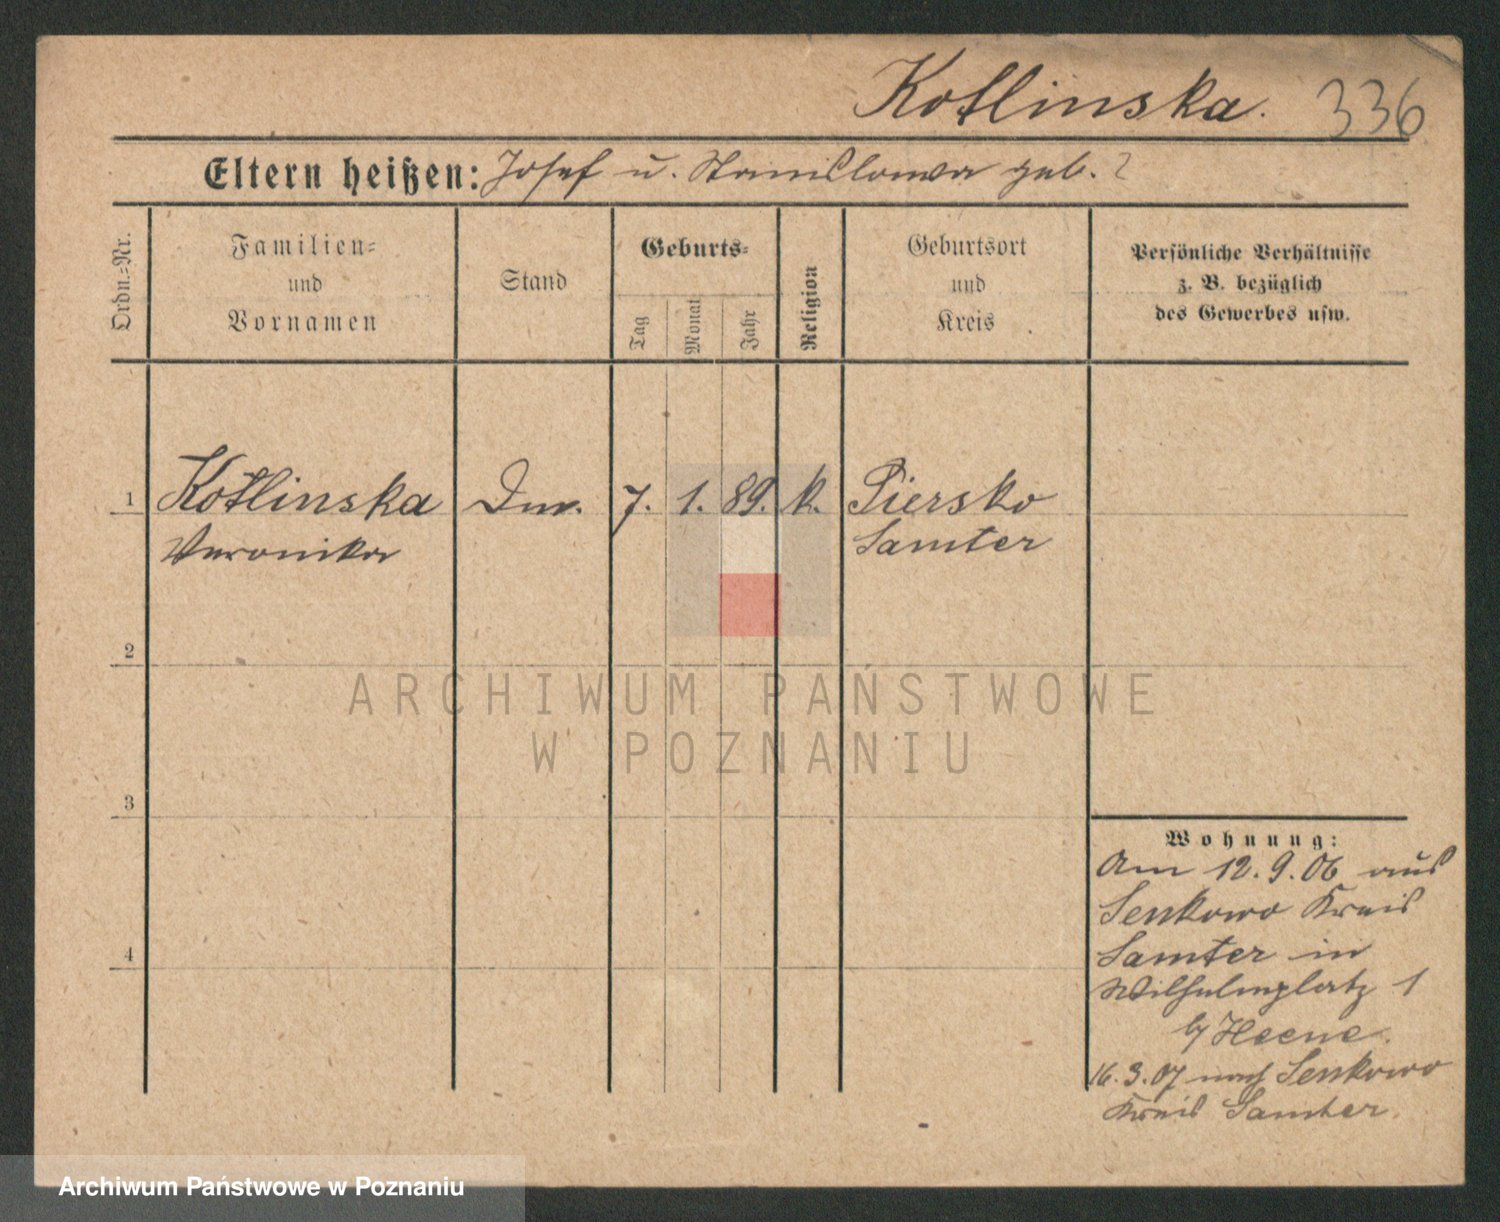 Kotlinska. 336
Eltern heißen: Josef u. Stanislawa geb. ?
Ordn.=Nr.
Familien=
und
Vornamen
Stand
Geburts=
Tag
Monat
Jahr
Religion
Geburtsort
und
Kreis
Persönliche Verhältnisse
z. B. bezüglich
des Gewerbes usw.
1 Kotlinska 7. 1. 89. k. Piersko
Veronika Samter
2
3
4
Wohnung:
Am 12.9.06 aus
Senkowo Kreis
Samter in
Wilhelmplatz 1
b/ Heene.
16.3.07 nach Senkowo
Kreis Samter.
ARCHIWUM PAŃSTWOWE
W POZNANIU
Archiwum Państwowe w Poznaniu